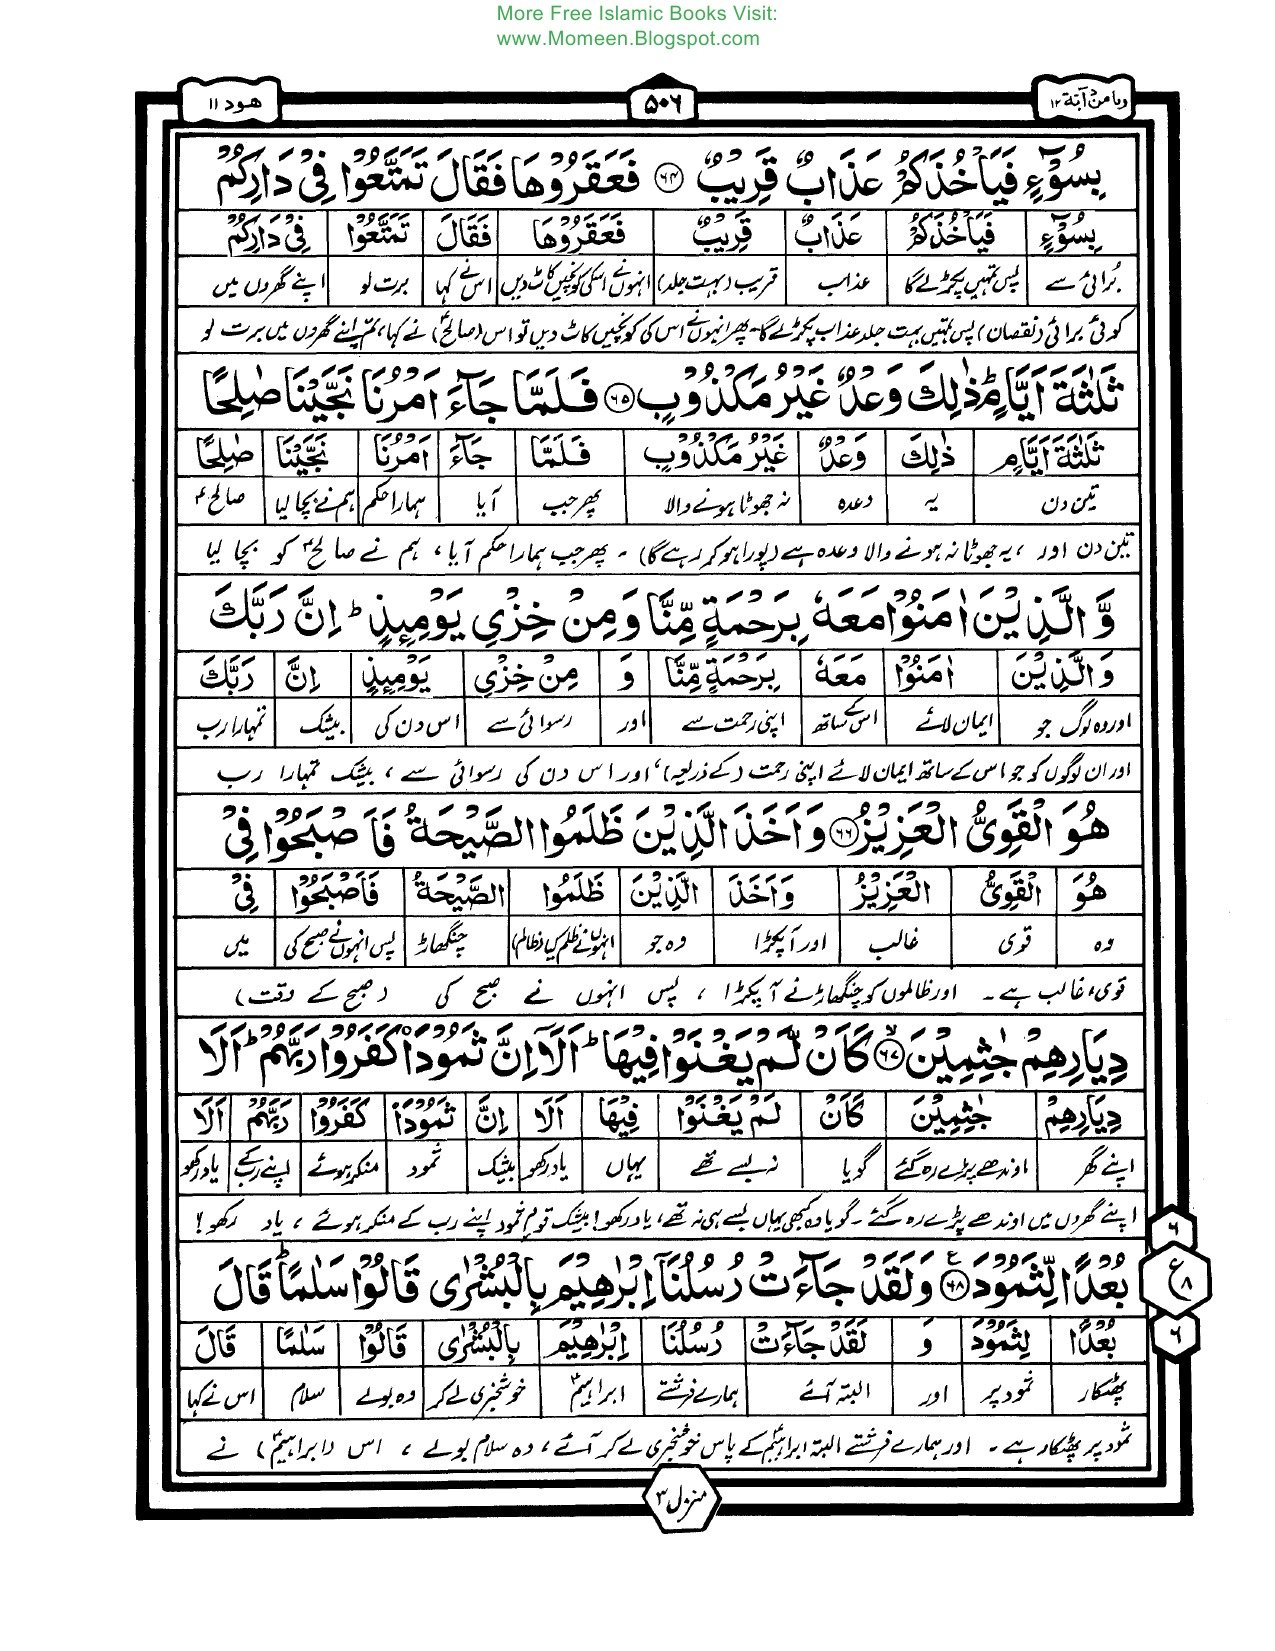 More Free Islamic Books Visit:
www.Momeen.Blogspot.com
وما من دآبة ١٢
٥٠٦
هود ١١
بِسُوْٓءٍ فَيَاْخُذَكُمْ عَذَابٌ قَرِيْبٌ ﴿٦٤﴾ فَعَقَرُوْهَا فَقَالَ تَمَتَّعُوْا فِيْ دَارِكُمْ
بِسُوْٓءٍ فَيَاْخُذَكُمْ عَذَابٌ قَرِيْبٌ فَعَقَرُوْهَا فَقَالَ تَمَتَّعُوْا فِيْ دَارِكُمْ
برائی سے پس تمہیں پکڑلے گا عذاب قریب (بہت جلد) انہوں نے اسکی کونچیں کاٹ دیں اس نے کہا برت لو اپنے گھروں میں
کوئی برائی (نقصان) پس تمہیں بہت جلد عذاب پکڑلے گا۔ پھر انہوں نے اس کی کونچیں کاٹ دیں تو اس (صالحؑ) نے کہا، تم اپنے گھروں میں برت لو
ثَلٰثَةَ اَيَّامٍ ؕ ذٰلِكَ وَعْدٌ غَيْرُ مَكْذُوْبٍ ﴿٦٥﴾ فَلَمَّا جَآءَ اَمْرُنَا نَجَّيْنَا صٰلِحًا
ثَلٰثَةَ اَيَّامٍ ذٰلِكَ وَعْدٌ غَيْرُ مَكْذُوْبٍ فَلَمَّا جَآءَ اَمْرُنَا نَجَّيْنَا صٰلِحًا
تین دن یہ وعدہ نہ جھوٹا ہونے والا پھر جب آیا ہمارا حکم ہم نے بچا لیا صالحؑ
تین دن اور، یہ جھوٹا نہ ہونے والا وعدہ ہے (پورا ہو کر رہے گا) ۔ پھر جب ہمارا حکم آیا، ہم نے صالحؑ کو بچا لیا
وَّالَّذِيْنَ اٰمَنُوْا مَعَهٗ بِرَحْمَةٍ مِّنَّا وَمِنْ خِزْيِ يَوْمِئِذٍ ؕ اِنَّ رَبَّكَ
وَّالَّذِيْنَ اٰمَنُوْا مَعَهٗ بِرَحْمَةٍ مِّنَّا وَ مِنْ خِزْيِ يَوْمِئِذٍ اِنَّ رَبَّكَ
اور وہ لوگ جو ایمان لائے اس کے ساتھ اپنی رحمت سے اور رسوائی سے اس دن کی بیشک تمہارا رب
اور ان لوگوں کو جو اس کے ساتھ ایمان لائے اپنی رحمت (کے ذریعہ)، اور اس دن کی رسوائی سے، بیشک تمہارا رب
هُوَ الْقَوِيُّ الْعَزِيْزُ ﴿٦٦﴾ وَاَخَذَ الَّذِيْنَ ظَلَمُوا الصَّيْحَةُ فَاَصْبَحُوْا فِيْ
هُوَ الْقَوِيُّ الْعَزِيْزُ وَاَخَذَ الَّذِيْنَ ظَلَمُوا الصَّيْحَةُ فَاَصْبَحُوْا فِيْ
وہ قوی غالب اور آپکڑا وہ جو انہوں نے ظلم کیا (ظالم) چنگھاڑ پس انہوں نے صبح کی میں
قوی، غالب ہے ۔ اور ظالموں کو چنگھاڑ نے آپکڑا، پس انہوں نے صبح کی (صبح کے وقت)
دِيَارِهِمْ جٰثِمِيْنَ ﴿٦٧﴾ كَاَنْ لَّمْ يَغْنَوْا فِيْهَا ؕ اَلَآ اِنَّ ثَمُوْدَا۟ كَفَرُوْا رَبَّهُمْ ؕ اَلَا
دِيَارِهِمْ جٰثِمِيْنَ كَاَنْ لَّمْ يَغْنَوْا فِيْهَا اَلَا اِنَّ ثَمُوْدَا۟ كَفَرُوْا رَبَّهُمْ اَلَا
اپنے گھر اوندھے پڑے رہ گئے گویا نہ بسے تھے یہاں یاد رکھو بیشک ثمود منکر ہوئے اپنے رب کے یاد رکھو
اپنے گھروں میں اوندھے پڑے رہ گئے ۔ گویا وہ کبھی یہاں بسے ہی نہ تھے، یاد رکھو! بیشک قوم ثمود اپنے رب کے منکر ہوئے، یاد رکھو!
بُعْدًا لِّثَمُوْدَ ﴿٦٨﴾ وَلَقَدْ جَآءَتْ رُسُلُنَآ اِبْرٰهِيْمَ بِالْبُشْرٰى قَالُوْا سَلٰمًا ؕ قَالَ
بُعْدًا لِّثَمُوْدَ وَ لَقَدْ جَآءَتْ رُسُلُنَا اِبْرٰهِيْمَ بِالْبُشْرٰى قَالُوْا سَلٰمًا قَالَ
پھٹکار ثمود پر اور البتہ آئے ہمارے فرشتے ابراہیمؑ خوشخبری لے کر وہ بولے سلام اس نے کہا
ثمود پر پھٹکار ہے ۔ اور ہمارے فرشتے البتہ ابراہیمؑ کے پاس خوشخبری لے کر آئے، وہ سلام بولے، اس (ابراہیمؑ) نے
٦
ع ٨
٦
منزل ٣